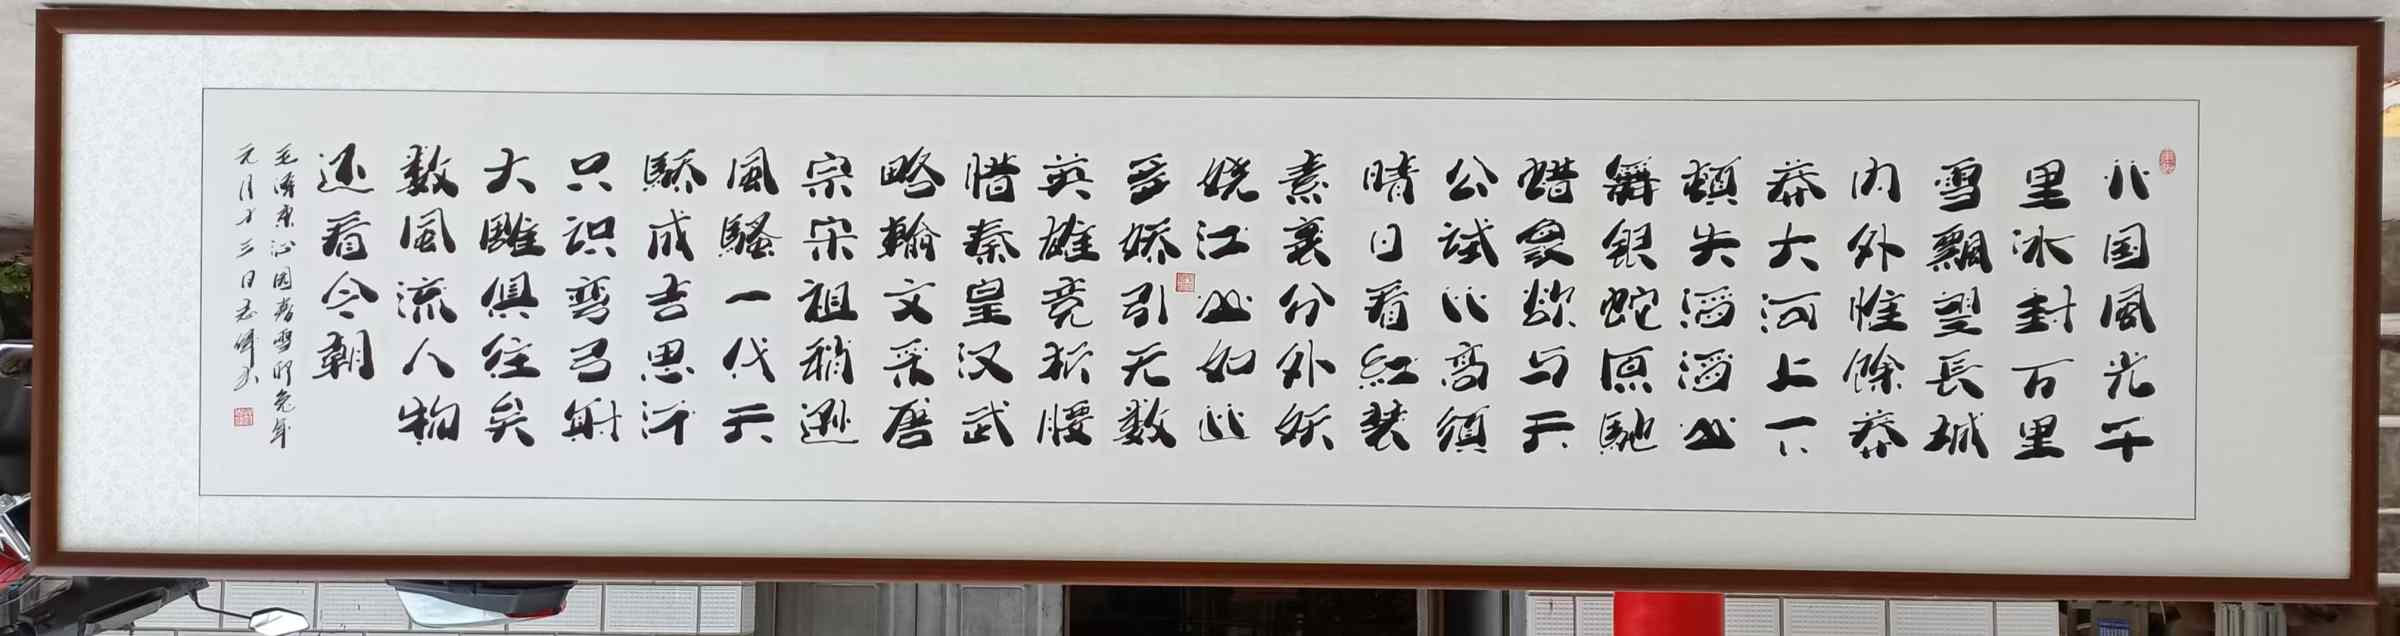 北国風光千
里冰封万里
雪飄望長城
内外惟餘莽
莽大河上下
頓失滔滔山
舞銀蛇原馳
蜡象欲与天
公試比高須
晴日看紅装
素裹分外妖
娆江山如此
多娇引无数
英雄竞折腰
惜秦皇汉武
略輸文采唐
宗宋祖稍遜
風騷一代天
驕成吉思汗
只识弯弓射
大雕俱往矣
数風流人物
还看今朝
毛澤東沁园春雪卯兔年
元月十三日志偉书